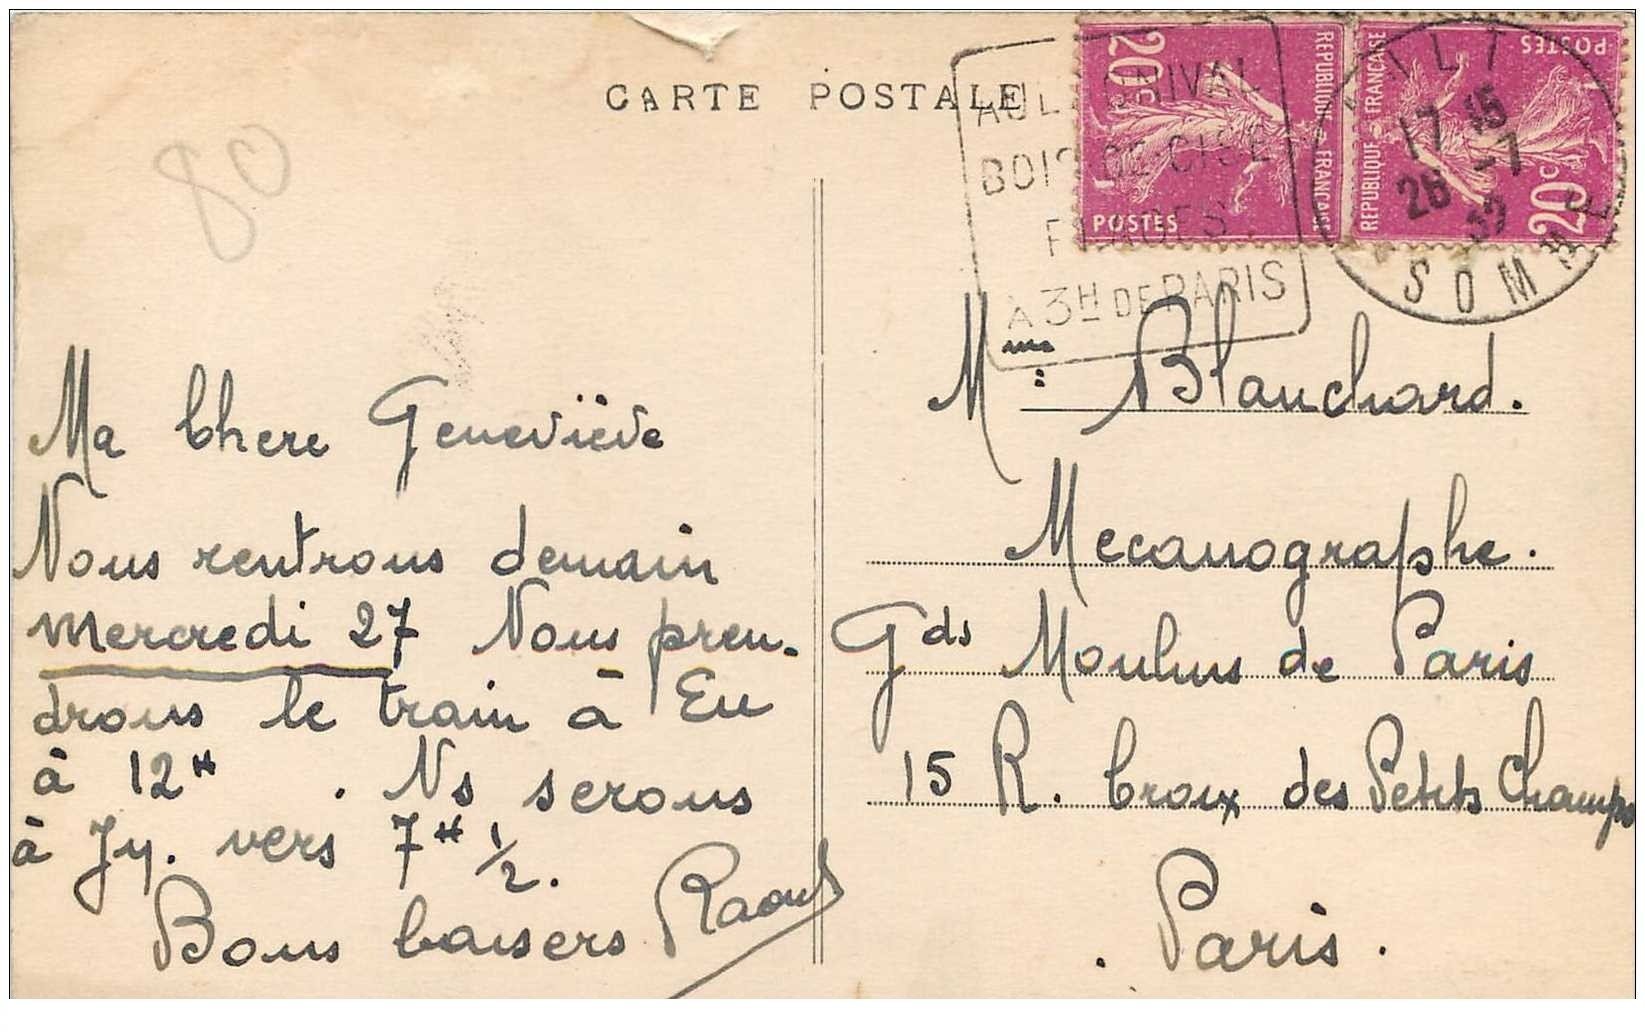 CARTE POSTALE
80
AULT ONIVAL
BOIS DE CISE
PLAGES
A 3H DE PARIS
20c
REPUBLIQUE FRANCAISE
POSTES
REPUBLIQUE FRANCAISE
POSTES
20c
AULT
17 15
26 -7
32
SOMME
Ma Chere Geneviève
Nous rentrons demain
mercredi 27 Nous pren-
drons le train à Eu
à 12H . Ns serons
à Jy. vers 7H 1/2.
Bons baisers Raoul
Mme: Blanchard.
Mecanographe.
Gds Moulins de Paris
15 R. Croix des Petits Champs
Paris.